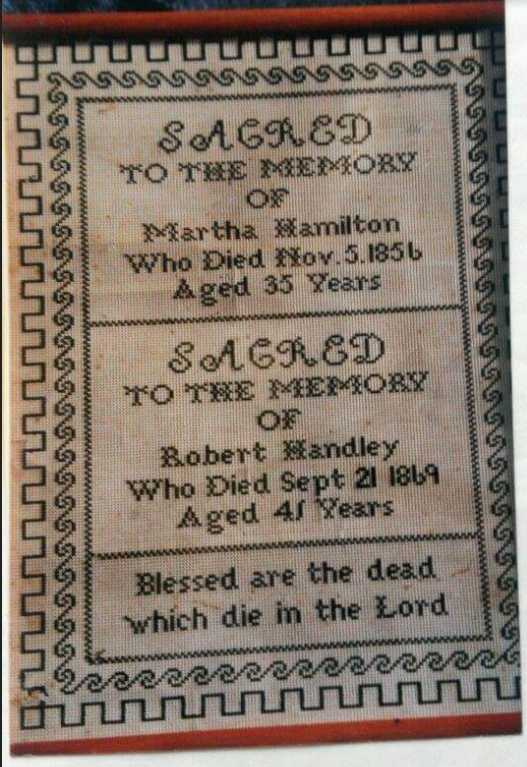 SACRED
TO THE MEMORY
OF
Martha Hamilton
Who Died Nov. 5. 1856
Aged 35 Years
SACRED
TO THE MEMORY
OF
Robert Handley
Who Died Sept 21 1869
Aged 41 Years
Blessed are the dead
which die in the Lord